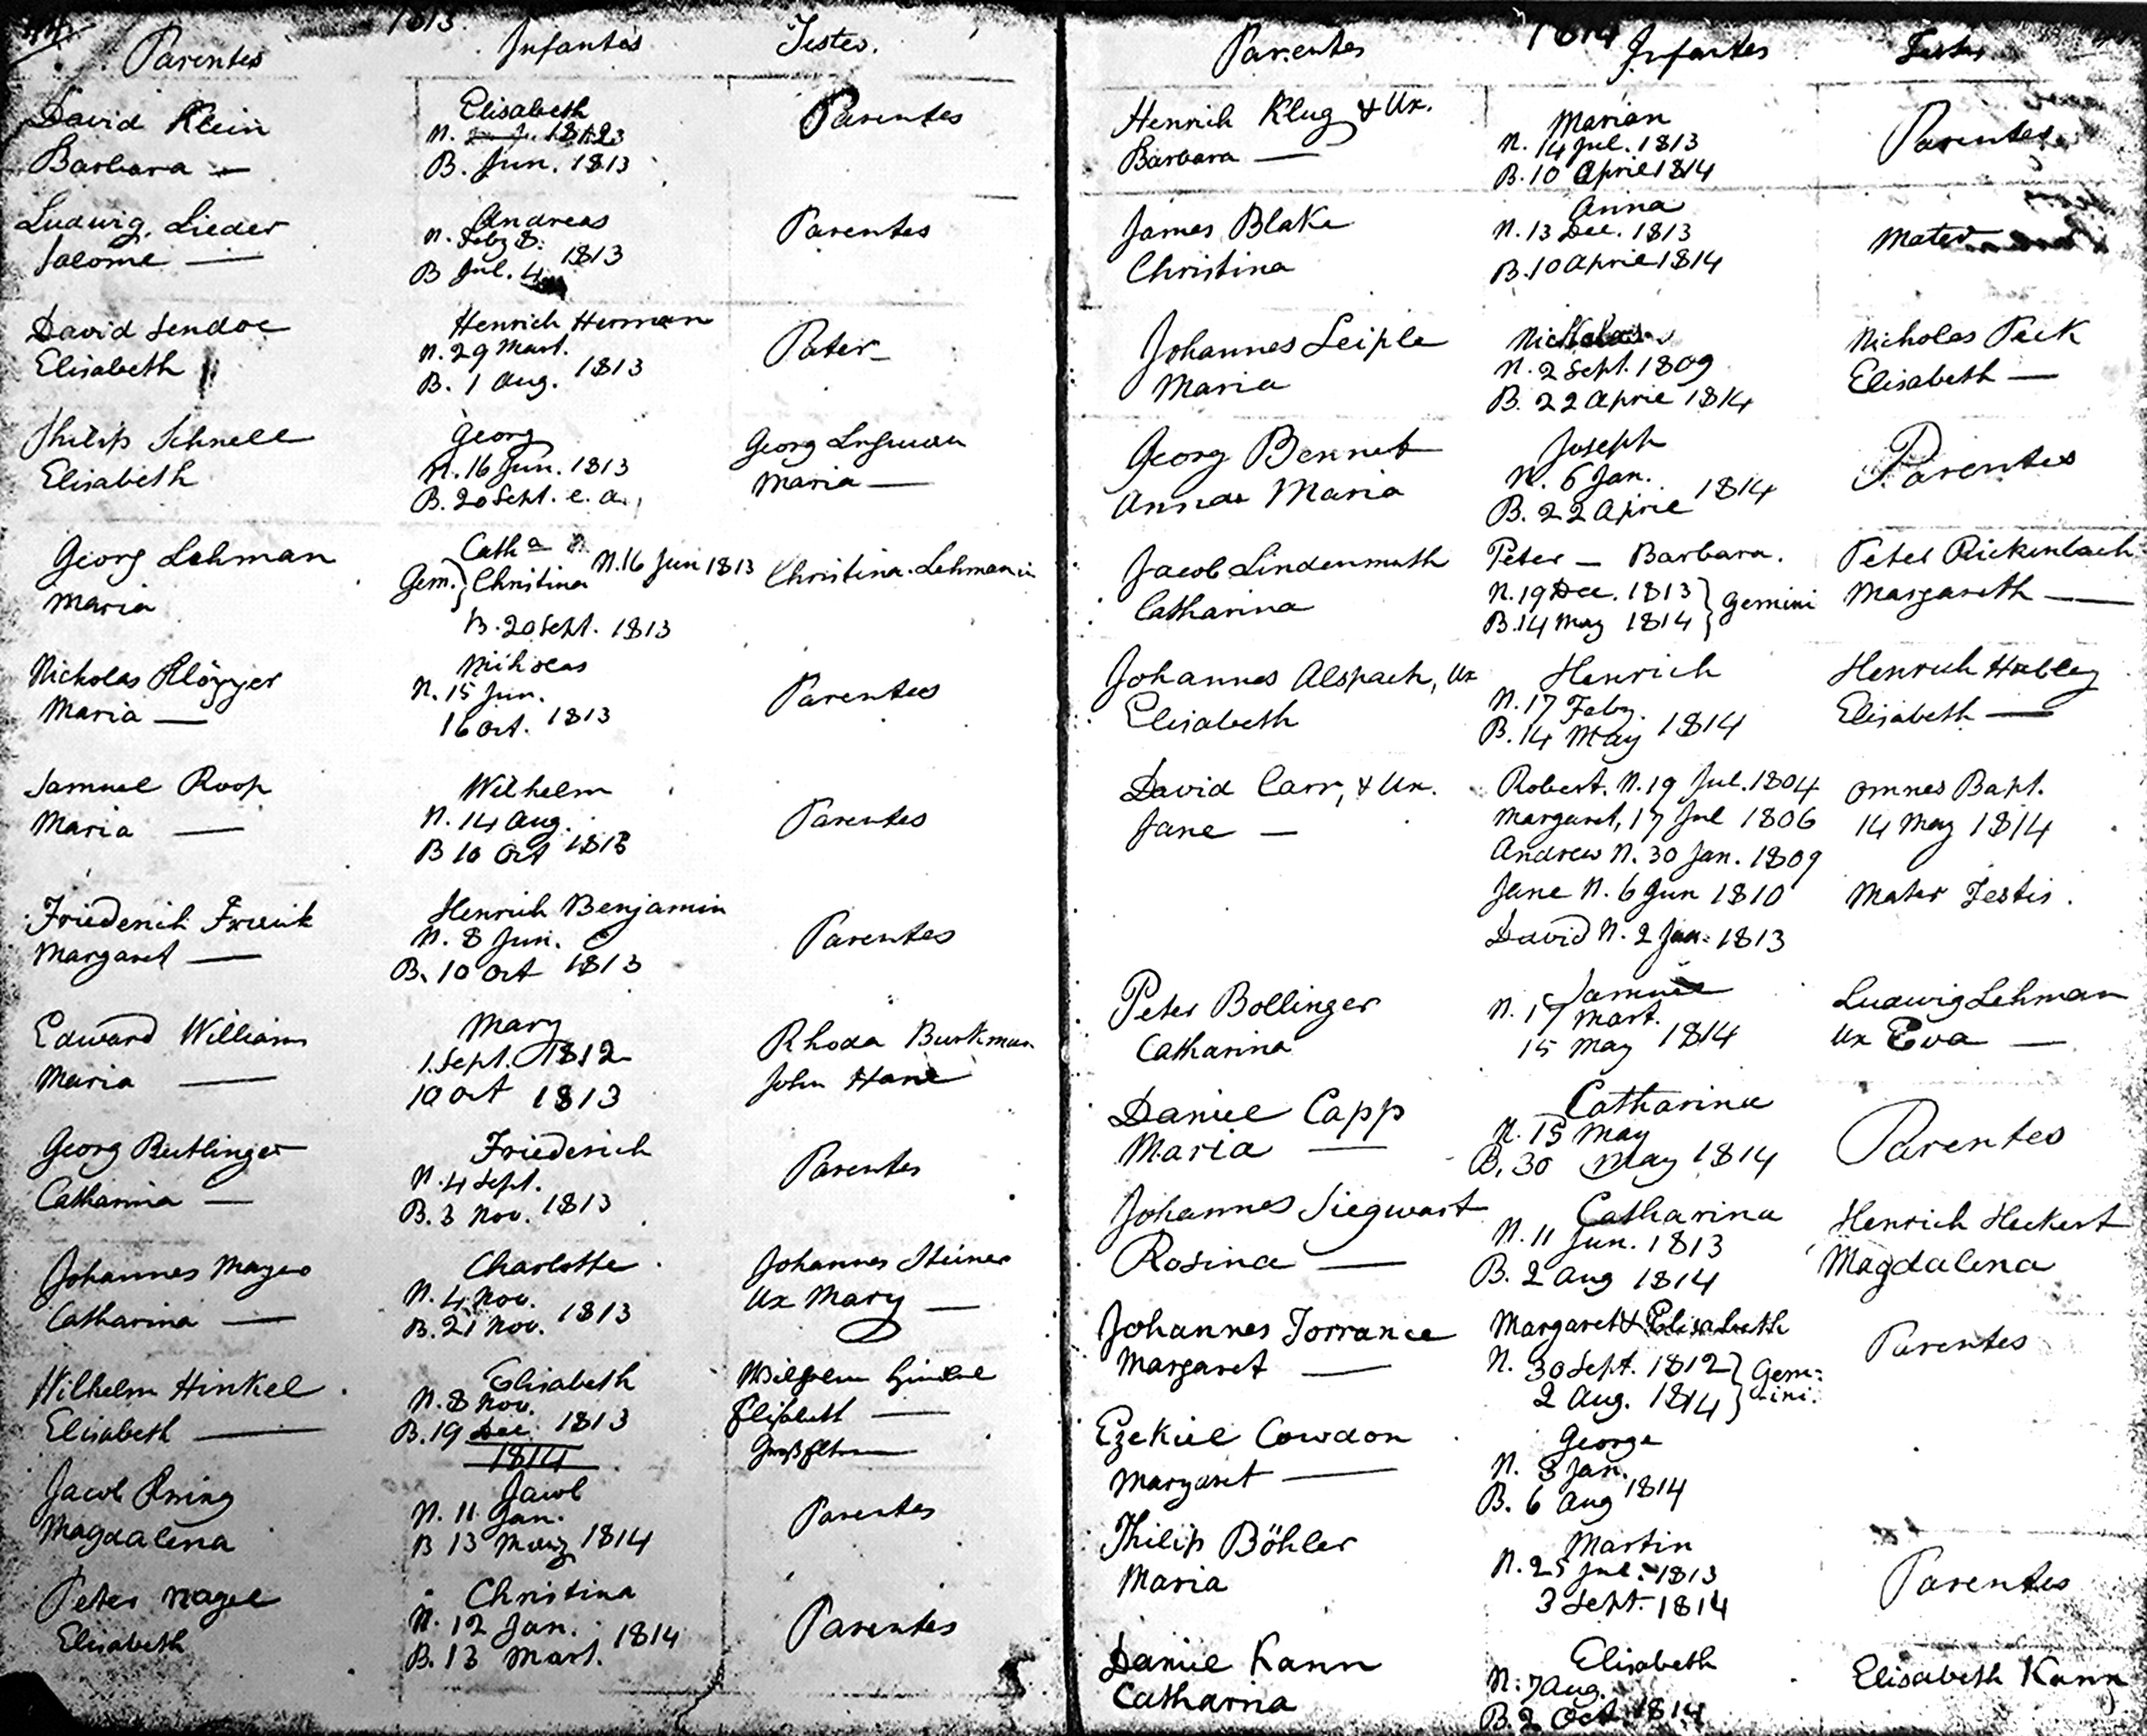 1813.
Parentes Infantes Testes.
David Klein Elisabeth Parentes
Barbara — N. 1812
B. Jun. 1813
Ludwig Lieder Andreas Parentes
Salome — N. Feby 8. 1813
B Jul. 4
David Sendoe Henrich Herman Pater
Elisabeth N. 29 Mart. 1813
B. 1 Aug.
Philip Schnell Georg Georg
Elisabeth N. 16 Jun. 1813 Maria —
B. 20 Sept. e. a.
Georg Lehman Cath a
Maria Gem. } Christina N. 16 Jun 1813 Christina Lehmanin
B. 20 Sept. 1813
Nicholas Nicholas Parentes
Maria — N. 15 Jun. 1813
16 Oct.
Samuel Roop Wilhelm Parentes
Maria — N. 14 Aug. 1813
B 10 Oct
Friederich Henrich Benjamin Parentes
Margaret — N. 8 Jun. 1813
B. 10 Oct
Edward William Mary Rhoda Burkman
Maria — 1. Sept. 1812 John Hane
10 Oct 1813
Georg Beitlinger Friederich Parentes
Catharina — N. 4 Sept. 1813
B. 3 Nov.
Johannes Mayer Charlotte Johannes Steiner
Catharina — N. 4 Nov. 1813 Ux Mary —
B. 21 Nov.
Wilhelm Hinkel Elisabeth Wilhelm Hinkel
Elisabeth — N. 8 Nov. 1813 Elisabeth —
B. 19 Dec. Großeltern
1814
Jacob Jacob Parentes
Magdalena N. 11 Jan. 1814
B 13 Marz
Peter Nagel Christina Parentes
Elisabeth N. 12 Jan. 1814
B. 13 Mart.
1814
Parentes Infantes Testes
Henrich Klug & Ux. Marian Parentes
Barbara — N. 14 Jul. 1813
B. 10 April 1814
James Blake Anna Mater
Christina N. 13 Dec. 1813
B. 10 April 1814
Johannes Leiple Nicholas Nicholas Peck
Maria N. 2 Sept. 1809 Elisabeth —
B. 22 April 1814
Georg Bennet Joseph Parentes
Anna Maria N. 6 Jan. 1814
B. 22 April
Jacob Lindenmuth Peter — Barbara. Peter Rickenbach
Catharina N. 19 Dec. 1813 } Gemini Margareth —
B. 14 May 1814
Johannes Alspach, Ux Henrich Henrich Hubley
Elisabeth N. 17 Feby. 1814 Elisabeth —
B. 14 May
David Carr, & Ux. Robert. N. 19 Jul. 1804 Omnes Bapt.
Jane — Margaret, 17 Jul 1806 14 May 1814
Andrew N. 30 Jan. 1809
Jane N. 6 Jun 1810 Mater Testis.
David N. 2 Jan. 1813
Peter Bollinger Samuel Ludwig Lehman
Catharina N. 17 Mart. 1814 Ux Eva —
15 May
Daniel Capp Catharina Parentes
Maria — N. 15 May
B. 30 May 1814
Johannes Siegwart Catharina Henrich Heckert
Rosina — N. 11 Jun. 1813 Magdalena
B. 2 Aug 1814
Johannes Torrance Margaret & Elisabeth Parentes
Margaret — N. 30 Sept. 1812 } Gem-
2 Aug. 1814 } ini.
Ezekiel Cowdon George
Margaret — N. 8 Jan. 1814
B. 6 Aug
Philip Böhler Martin Parentes
Maria N. 25 Jul. 1813
3 Sept. 1814
Daniel Kann Elisabeth Elisabeth Kann
Catharina N. 7 Aug. 1814
B. 2 Oct.